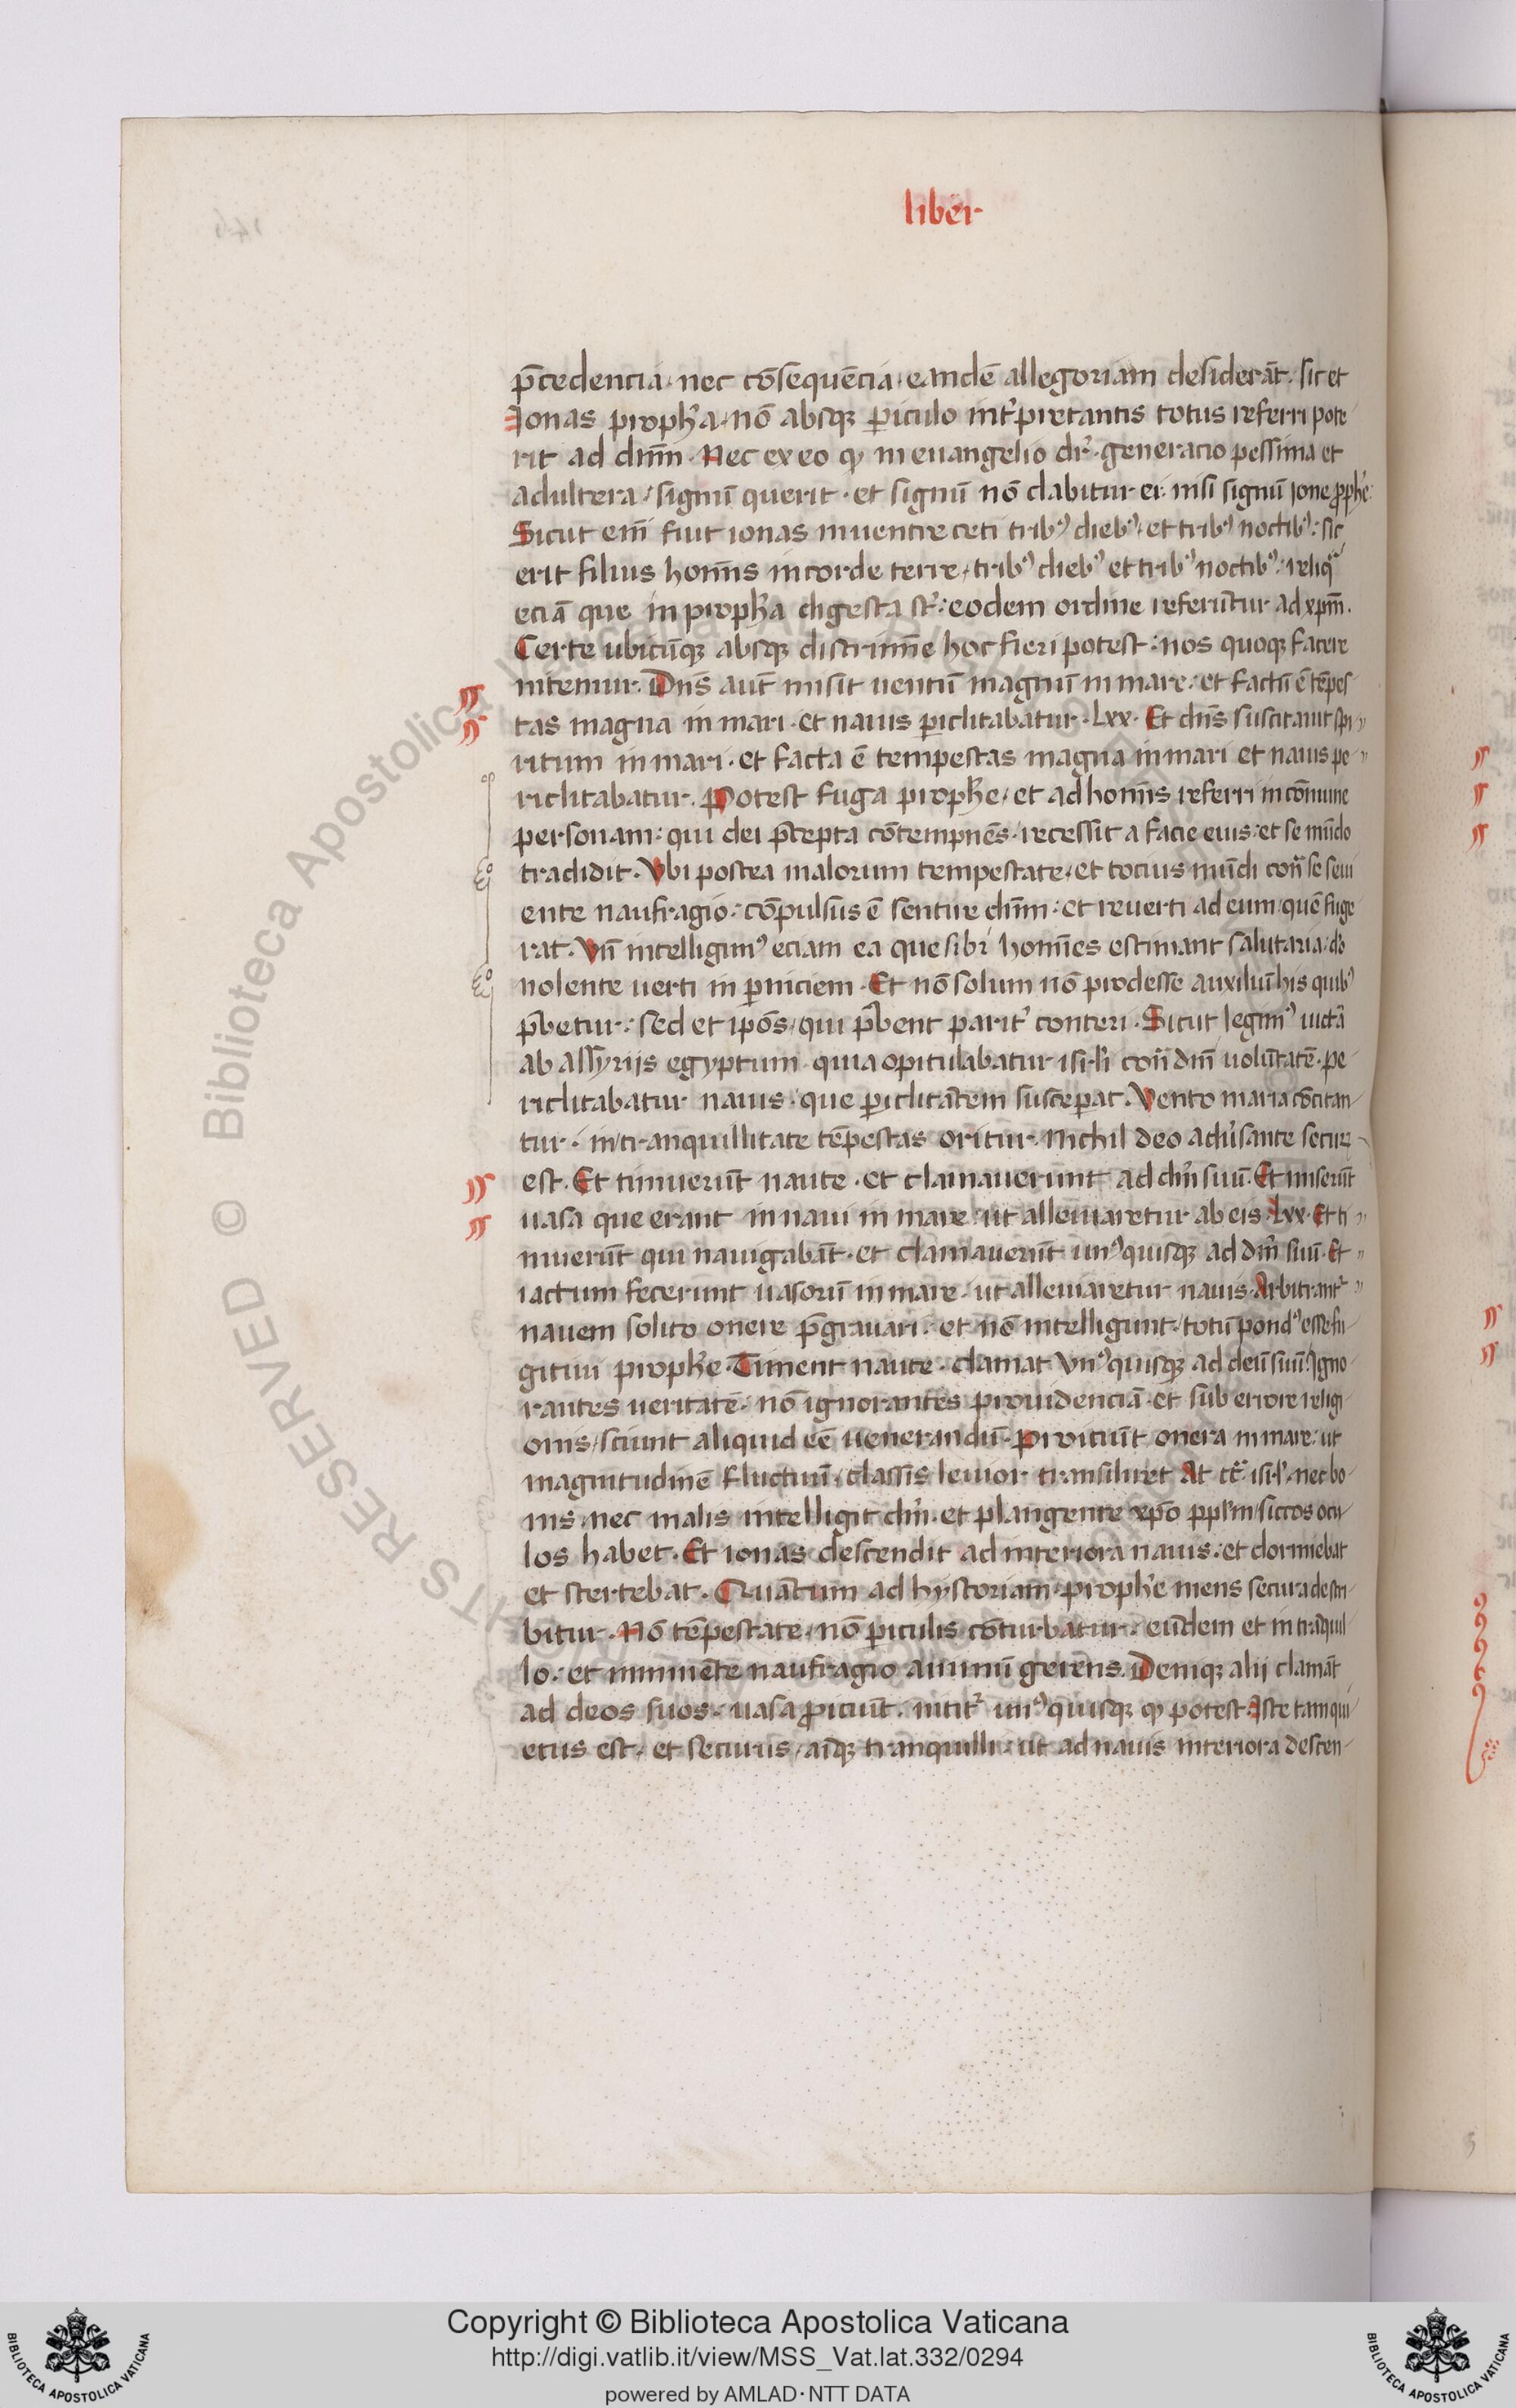 liber
p̄cedencia. nec cōsequēcia. eandē allegoriam desiderāt. sic et
Jonas proph̄a. nō absqꝫ ꝑiculo int̉pretantis totus referri pote
rit ad dn̄m. Nec ex eo ꝙ in euangelio dr̉. generacio pessima et
adultera / signū querit. et signū nō dabitur ei. nisi signū ione ꝓph̄e:
Sicut em̄ fuit ionas in uentre ceti tribꝰ diebꝰ. et tribꝰ noctibꝰ: sic
erit filius hom̄s in corde terre, tribꝰ diebꝰ et tribꝰ noctibꝰ: reliqᵃ
eciā que in proph̄a digesta st̉: eodem ordine referūtur ad xp̄m.
Certe ubicūqꝫ absqꝫ discrimīe hoc fieri potest: nos quoqꝫ facere
nitemur. Dn̄s aut̄ misit uentū magnū in mare: et factū ē tēpes
tas magna in mari. et nauis ꝑiclitabatur. Lxx. Et dn̄s suscitauit spi
ritum in mari. et facta ē tempestas magna in mari et nauis pe
riclitabatur. Potest fuga proph̄e. et ad hom̄s referri in cōmune
personam: qui dei p̄cepta cōtempnēs. recessit a facie eius: et se mūdo
tradidit. Vbi postea malorum tempestate. et tocius mūdi cont̄ se seui
ente naufragio: cōpulsus ē sentire dn̄m: et reuerti ad eum quē fuge
rat. Vn̄ intelligimꝰ eciam ea que sibi homīes estimant salutaria. do
nolente uerti in ꝑniciem. Et nō solum nō prodesse auxiliū his quibꝰ
p̄betur: sed et ipōs, qui p̄bent parit̉ conteri. Sicut legimꝰ uictā
ab assyrijs egyptum. quia opitulabatur isrl̄i cont̄ dn̄i uolūtatē. pe
riclitabatur nauis. que ꝑiclitātem susceꝑat. Vento maria cōcitan
tur. in tranquillitate tēpestas oritur. Nichil deo adu̓sante securꝫ
est. Et timuerūt naute. et clamauerunt ad dn̄m suū. Et miserūt
uasa que erant in naui in mare: ut alleuiaretur ab eis. Lxx. Et ti
muerūt qui nauigabāt. et clamauerūt unꝰquisqꝫ ad dn̄m suū. Et
iactum fecerunt uasorū in mare. ut alleuiaretur nauis. Arbitrant̉
nauem solito onere p̄grauari: et nō intelligunt. totū pondꝰ esse fu
gitiui proph̄e. Timent naute. clamat Vnꝰquisqꝫ ad deū suū. Igno
rantes ueritatē. nō ignorantes prouidenciā. et sub errore religi
onis, sciunt aliquid eē uenerandū. Proiciūt onera in mare: ut
magnitudinē fluctuū, classis leuior transiliret. At cōt̄ isrl̄. nec bo
nis. nec malis intelligit dn̄m. et plangente xp̄o ppl̄m, siccos ocu
los habet. Et ionas descendit ad interiora nauis: et dormiebat
et stertebat. Quātum ad hystoriam. proph̄e mens secura descri
bitur. Nō tēpestate. nō ꝑiculis cōturbatur. eūdem et in trāquil
lo: et imminēte naufragio animū gerens. Deniqꝫ alij clamāt
ad deos suos. uasa ꝓiciūt. nitit̉ unꝰquisqꝫ ꝙ potest. Iste tam qui
etus est. et securus, aīqꝫ tranquilli: ut ad nauis interiora descen
Copyright © Biblioteca Apostolica Vaticana
http://digi.vatlib.it/view/MSS_Vat.lat.332/0294
powered by AMLAD·NTT DATA